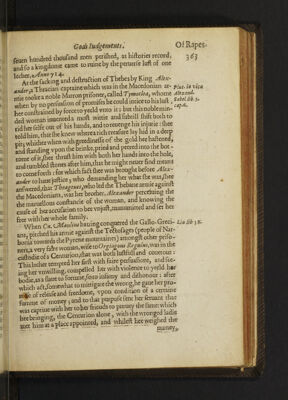 Gods Iudgements. Of Rapes.
363
seuen hundred thousand men perished, as histories record,
and so a kingdome came to ruine by the peruerse lust of one
lecher, Anno 714.
At the sacking and destruction of Thebes by King Alex-
ander, a Thracian captaine which was in the Macedonian ar-
mie tooke a noble Matron prisoner, called Tymoclea, whome
when by no persuasion of promises he could intice to his lust,
her constrained by force to yeeld vnto it: but this noble min-
ded woman inuented a most wittie and subtill shift both to
rid her selfe out of his hands, and to reuenge his iniurie: she
told him, that she knew where a rich treasure lay hid in a deep
pit; whither when with greedinesse of the gold he hastened,
and standing vpon the brinke, pried and peered into the bot-
tome of it, shee thrust him with both her hands into the hole,
and tumbled stones after him, that he might neuer find means
to come forth: for which fact she was brought before Alex-
ander to haue iustice; who demanding her what she was, she
answered, that Theagenes, who led the Thebane armie against
the Macedonians, was her brother. Alexander perceiuing the
the maruellous constancie of the woman, and knowing the
cause of her accusation to bee vniust, manumitted and set her
free with her whole family.
Plut. in vita
Alexand.
Sabel. lib. 5.
cap. 6.
When Cn. Manlius hauing conquered the Gallo-Greci-
ans, pitched his armie against the Tectosages (people of Nar-
bonia towards the Pyrene mountaines) amongst other priso-
ners, a very faire woman, wife to Orgiagons Regulus, was in the
custodie of a Centurion, that was both lustfull and couetous:
This lecher tempted her first with faire persuasions, and see-
ing her vnwilling, compelled her with violence to yeeld her
bodie, as a slaue to fortune, so to infamy and dishonour: after
which act, somewhat to mitigate the wrong, he gaue her pro-
mise of release and freedome, vpon condition of a certaine
summe of money; and to that purpose sent her seruant that
was captiue with her to her friends to puruey the same: which
hee bringing, the Centurion alone, with the wronged ladie
met him at a place appointed, and whilest hee weighed the
money,
Liu. lib. 38.